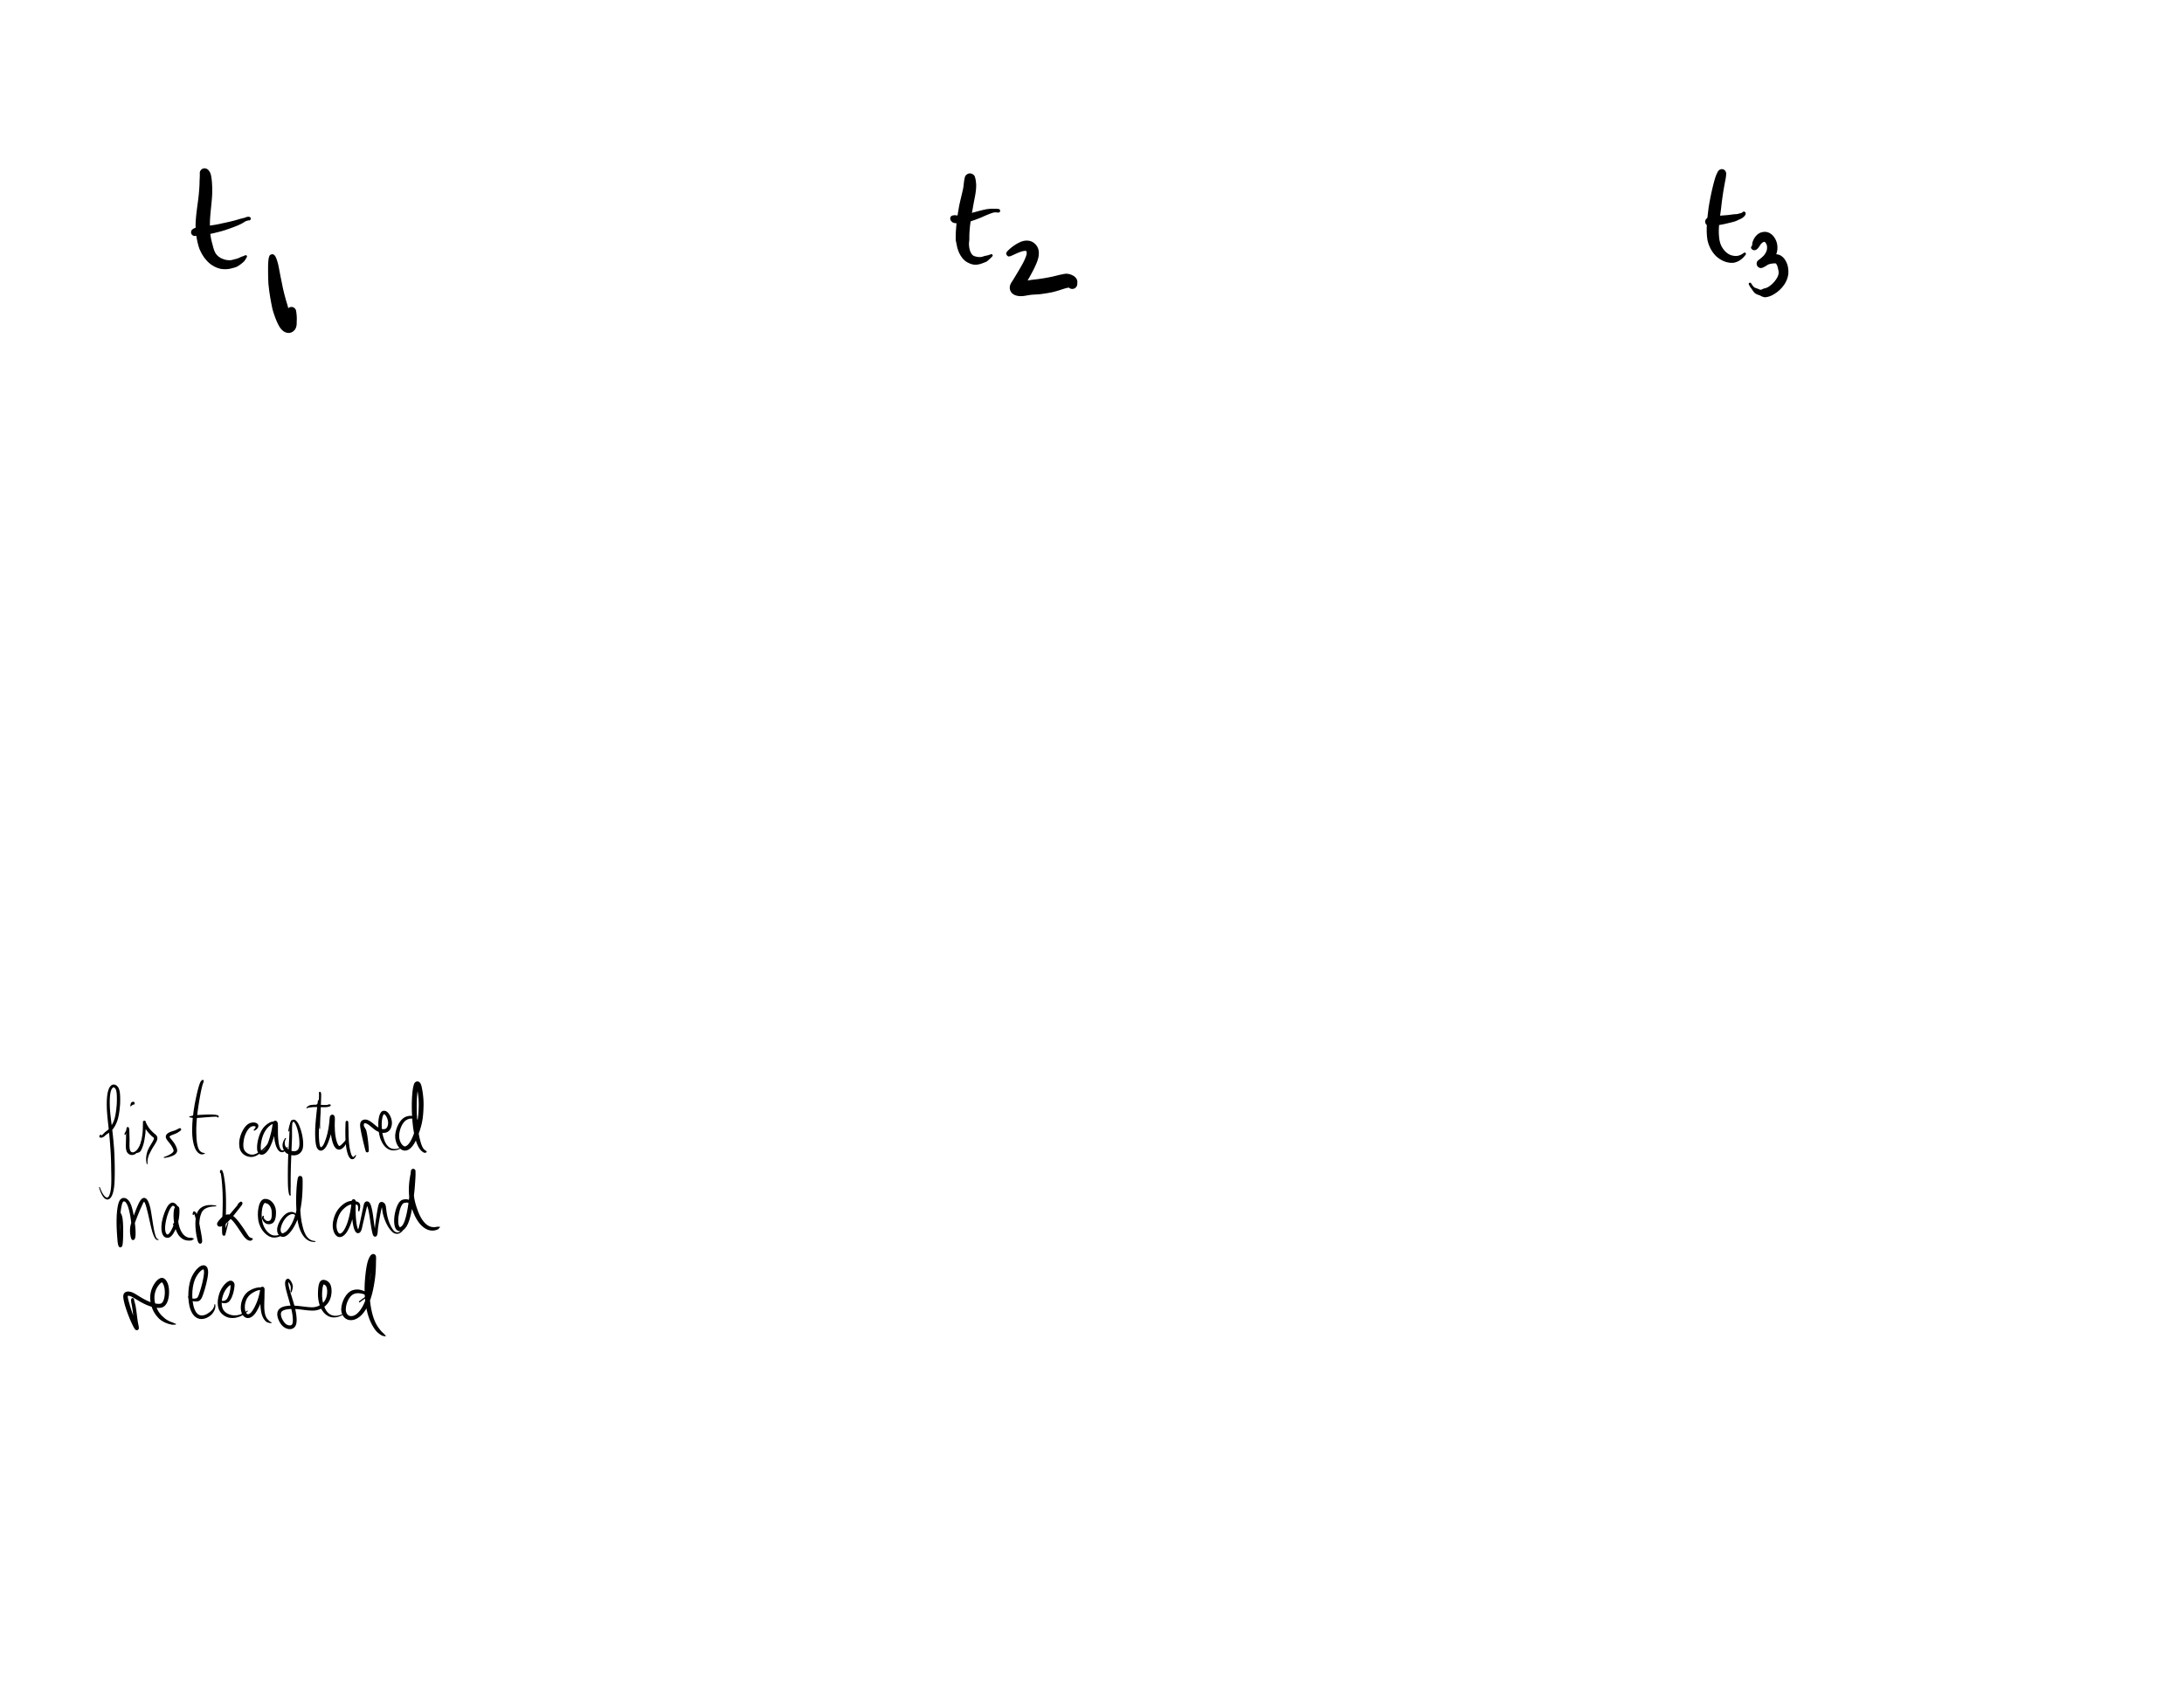 t₁ t₂ t₃
first captured
marked and
released